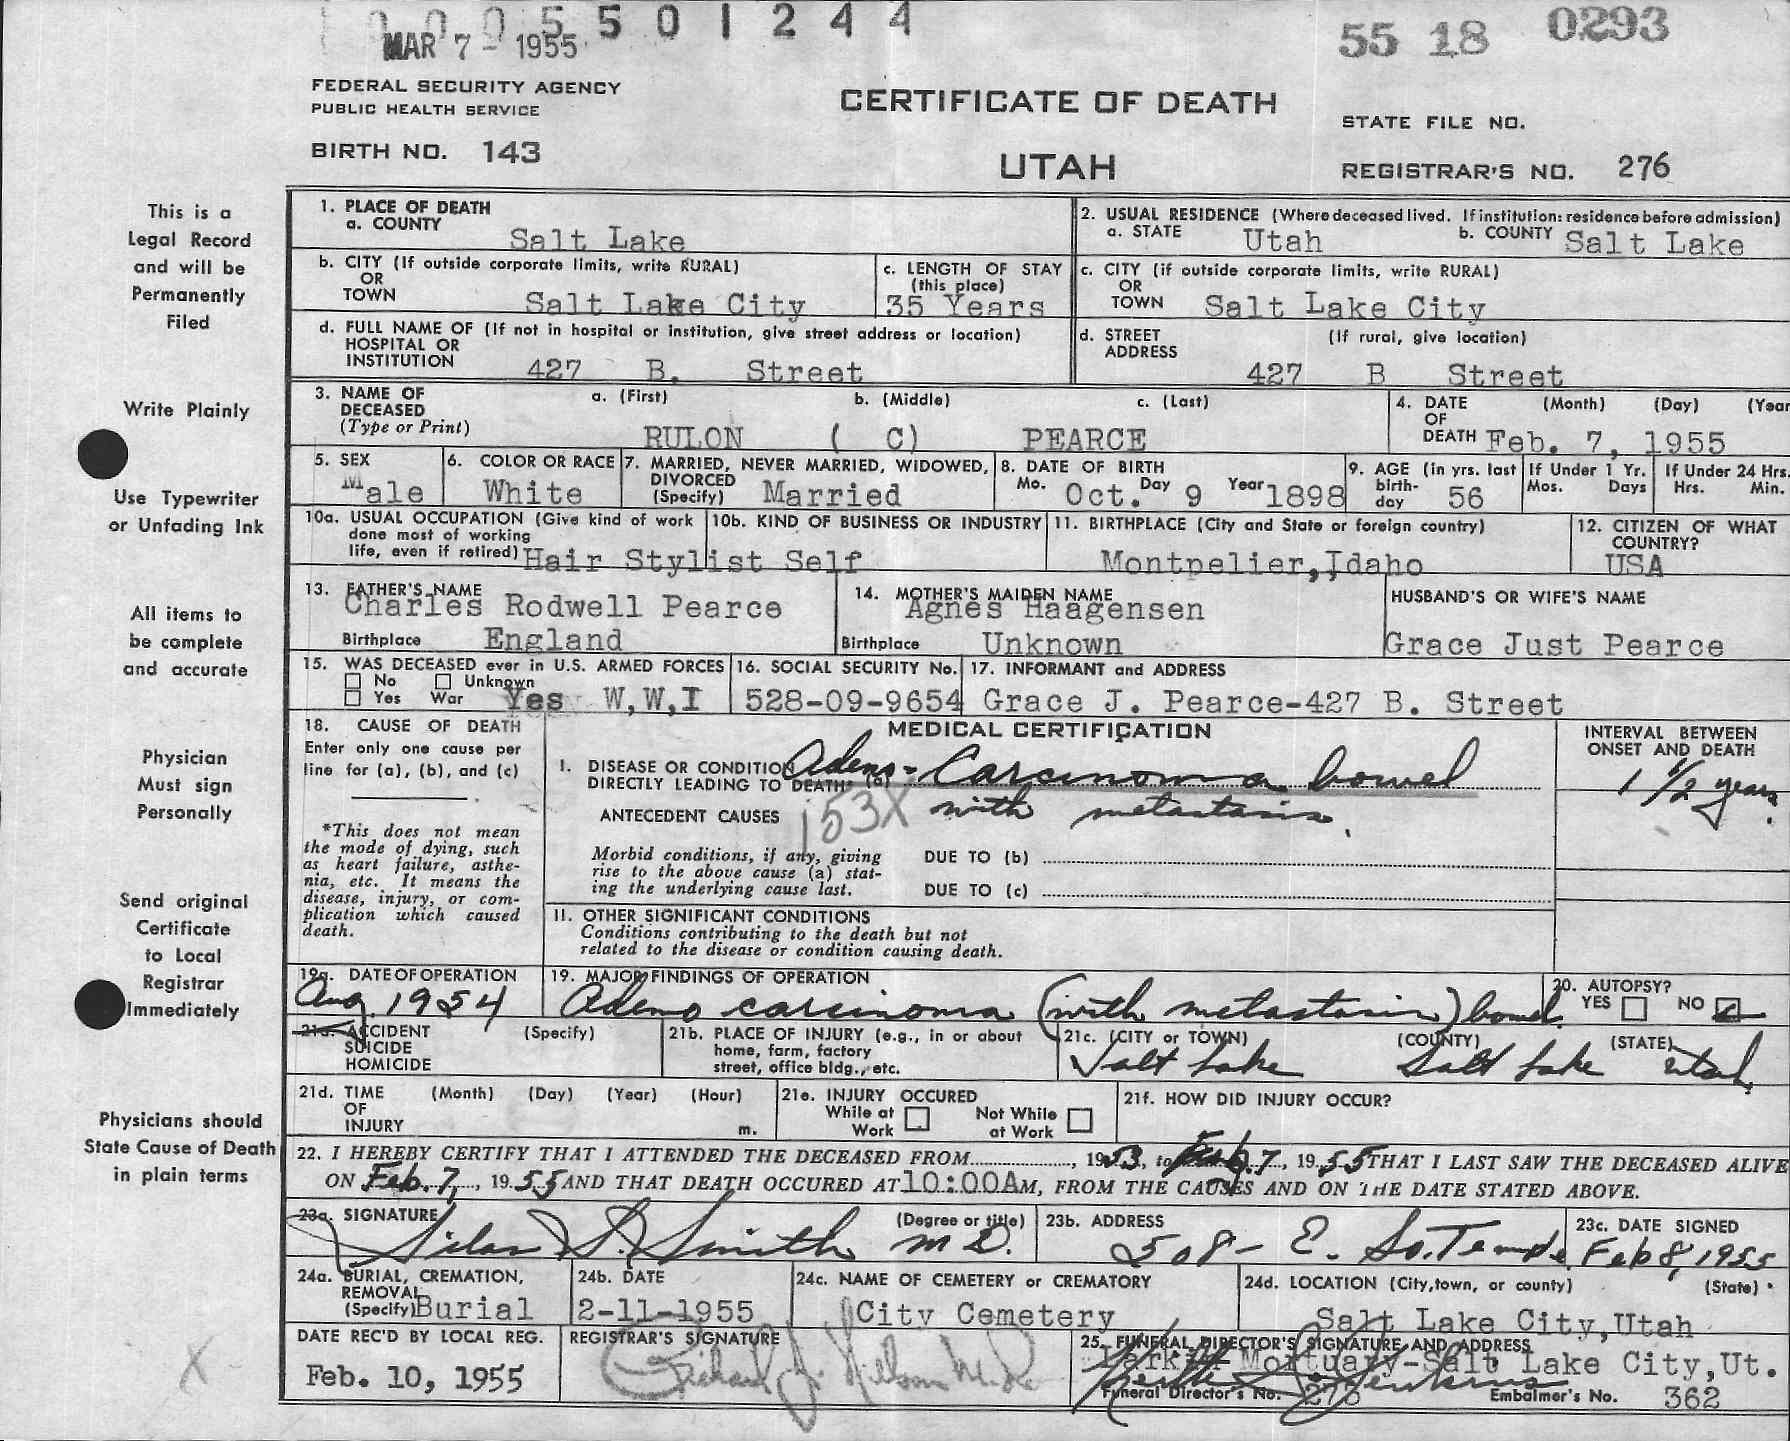 0005501244
MAR 7 - 1955
55 18 0293
FEDERAL SECURITY AGENCY
PUBLIC HEALTH SERVICE
CERTIFICATE OF DEATH
STATE FILE NO.
BIRTH NO. 143
UTAH
REGISTRAR'S NO. 276
This is a
Legal Record
and will be
Permanently
Filed
Write Plainly
Use Typewriter
or Unfading Ink
All items to
be complete
and accurate
Physician
Must sign
Personally
Send original
Certificate
to Local
Registrar
Immediately
Physicians should
State Cause of Death
in plain terms
1. PLACE OF DEATH
a. COUNTY Salt Lake
2. USUAL RESIDENCE (Where deceased lived. If institution: residence before admission)
a. STATE Utah b. COUNTY Salt Lake
b. CITY (If outside corporate limits, write RURAL)
OR
TOWN Salt Lake City
c. LENGTH OF STAY
(this place)
35 Years
c. CITY (if outside corporate limits, write RURAL)
OR
TOWN Salt Lake City
d. FULL NAME OF (If not in hospital or institution, give street address or location)
HOSPITAL OR
INSTITUTION 427 B. Street
d. STREET (If rural, give location)
ADDRESS
427 B Street
3. NAME OF
DECEASED
(Type or Print)
a. (First) b. (Middle) c. (Last)
RULON ( C) PEARCE
4. DATE (Month) (Day) (Year
OF
DEATH Feb. 7, 1955
5. SEX
Male
6. COLOR OR RACE
White
7. MARRIED, NEVER MARRIED, WIDOWED,
DIVORCED
(Specify) Married
8. DATE OF BIRTH
Mo. Oct. Day 9 Year 1898
9. AGE (in yrs. last
birth-
day 56
If Under 1 Yr.
Mos. Days
If Under 24 Hrs.
Hrs. Min.
10a. USUAL OCCUPATION (Give kind of work
done most of working
life, even if retired) Hair Stylist
10b. KIND OF BUSINESS OR INDUSTRY
Self
11. BIRTHPLACE (City and State or foreign country)
Montpelier,Idaho
12. CITIZEN OF WHAT
COUNTRY?
USA
13. FATHER'S NAME
Charles Rodwell Pearce
Birthplace England
14. MOTHER'S MAIDEN NAME
Agnes Haagensen
Birthplace Unknown
HUSBAND'S OR WIFE'S NAME
Grace Just Pearce
15. WAS DECEASED ever in U.S. ARMED FORCES
No Unknown
Yes War Yes W,W,I
16. SOCIAL SECURITY No.
528-09-9654
17. INFORMANT and ADDRESS
Grace J. Pearce-427 B. Street
18. CAUSE OF DEATH
Enter only one cause per
line for (a), (b), and (c)
*This does not mean
the mode of dying, such
as heart failure, asthe-
nia, etc. It means the
disease, injury, or com-
plication which caused
death.
MEDICAL CERTIFICATION
INTERVAL BETWEEN
ONSET AND DEATH
I. DISEASE OR CONDITION
DIRECTLY LEADING TO DEATH* (a) Adeno-Carcinoma bowel
1 1/2 years.
ANTECEDENT CAUSES 153X with metastasis.
Morbid conditions, if any, giving
rise to the above cause (a) stat-
ing the underlying cause last.
DUE TO (b)
DUE TO (c)
II. OTHER SIGNIFICANT CONDITIONS
Conditions contributing to the death but not
related to the disease or condition causing death.
19a. DATE OF OPERATION
Aug. 1954
19. MAJOR FINDINGS OF OPERATION
Adeno carcinoma (with metastasis) bowel.
20. AUTOPSY?
YES NO
21a. ACCIDENT (Specify)
SUICIDE
HOMICIDE
21b. PLACE OF INJURY (e.g., in or about
home, farm, factory
street, office bldg., etc.
21c. (CITY or TOWN) (COUNTY) (STATE)
Salt Lake Salt Lake Utah
21d. TIME (Month) (Day) (Year) (Hour)
OF
INJURY m.
21e. INJURY OCCURED
While at Work Not While at Work
21f. HOW DID INJURY OCCUR?
22. I HEREBY CERTIFY THAT I ATTENDED THE DECEASED FROM , 1953, to Feb. 7, 1955 THAT I LAST SAW THE DECEASED ALIVE
ON Feb. 7, 1955 AND THAT DEATH OCCURED AT 10:00AM, FROM THE CAUSES AND ON THE DATE STATED ABOVE.
23a. SIGNATURE (Degree or title)
Silas S. Smith M D.
23b. ADDRESS
508 - E. So. Temple
23c. DATE SIGNED
Feb 8, 1955
24a. BURIAL, CREMATION,
REMOVAL
(Specify) Burial
24b. DATE
2-11-1955
24c. NAME OF CEMETERY or CREMATORY
City Cemetery
24d. LOCATION (City, town, or county) (State)
Salt Lake City,Utah
DATE REC'D BY LOCAL REG.
Feb. 10, 1955
REGISTRAR'S SIGNATURE
Richard J. Nelson M.D.
25. FUNERAL DIRECTOR'S SIGNATURE AND ADDRESS
Larkin Mortuary-Salt Lake City,Ut.
Funeral Director's No. 273 Embalmer's No. 362